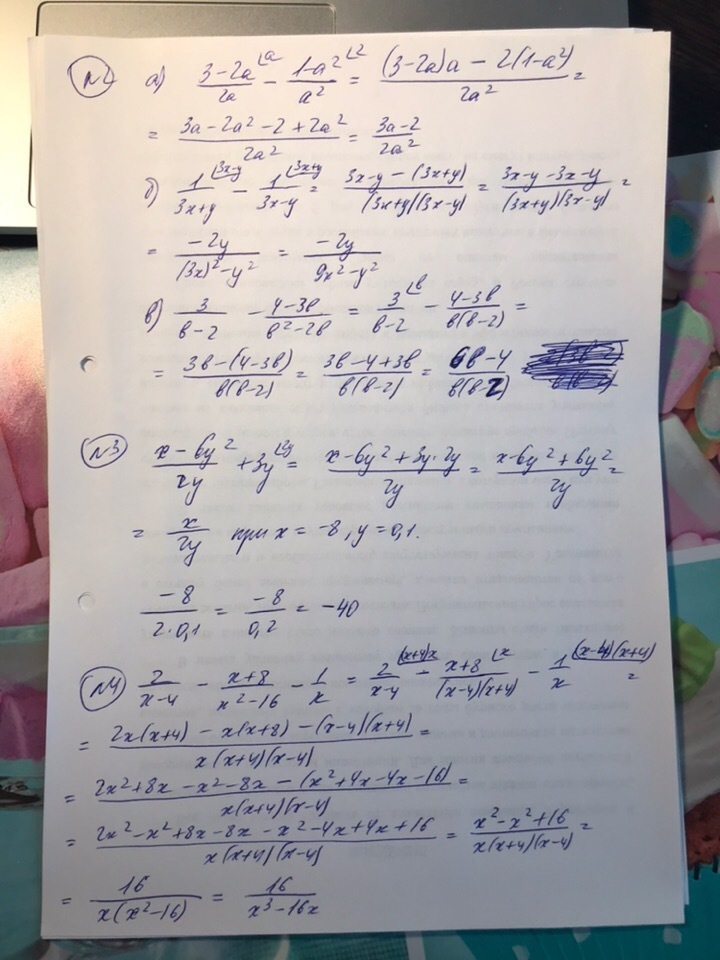 №2 а) (3-2a)/(2a) ⌊a - (1-a²)/(a²) ⌊2 = ((3-2a)a - 2(1-a²))/(2a²) =
= (3a-2a²-2+2a²)/(2a²) = (3a-2)/(2a²)
б) 1/(3x+y) ⌊3x-y - 1/(3x-y) ⌊3x+y = (3x-y-(3x+y))/((3x+y)(3x-y)) = (3x-y-3x-y)/((3x+y)(3x-y)) =
= (-2y)/((3x)²-y²) = (-2y)/(9x²-y²)
в) 3/(в-2) - (4-3в)/(в²-2в) = 3/(в-2) ⌊в - (4-3в)/(в(в-2)) =
= (3в-(4-3в))/(в(в-2)) = (3в-4+3в)/(в(в-2)) = (6в-4)/(в(в-2))
№3 (x-6y²)/(2y) + 3y ⌊2y = (x-6y²+3y·2y)/(2y) = (x-6y²+6y²)/(2y) =
= x/(2y) при x = -8, y = 0,1.
(-8)/(2·0,1) = (-8)/(0,2) = -40
№4 2/(x-4) - (x+8)/(x²-16) - 1/x = 2/(x-4) ⌊(x+4)x - (x+8)/((x-4)(x+4)) ⌊x - 1/x ⌊(x-4)(x+4) =
= (2x(x+4) - x(x+8) - (x-4)(x+4))/(x(x+4)(x-4)) =
= (2x²+8x-x²-8x-(x²+4x-4x-16))/(x(x+4)(x-4)) =
= (2x²-x²+8x-8x-x²-4x+4x+16)/(x(x+4)(x-4)) = (x²-x²+16)/(x(x+4)(x-4)) =
= 16/(x(x²-16)) = 16/(x³-16x)